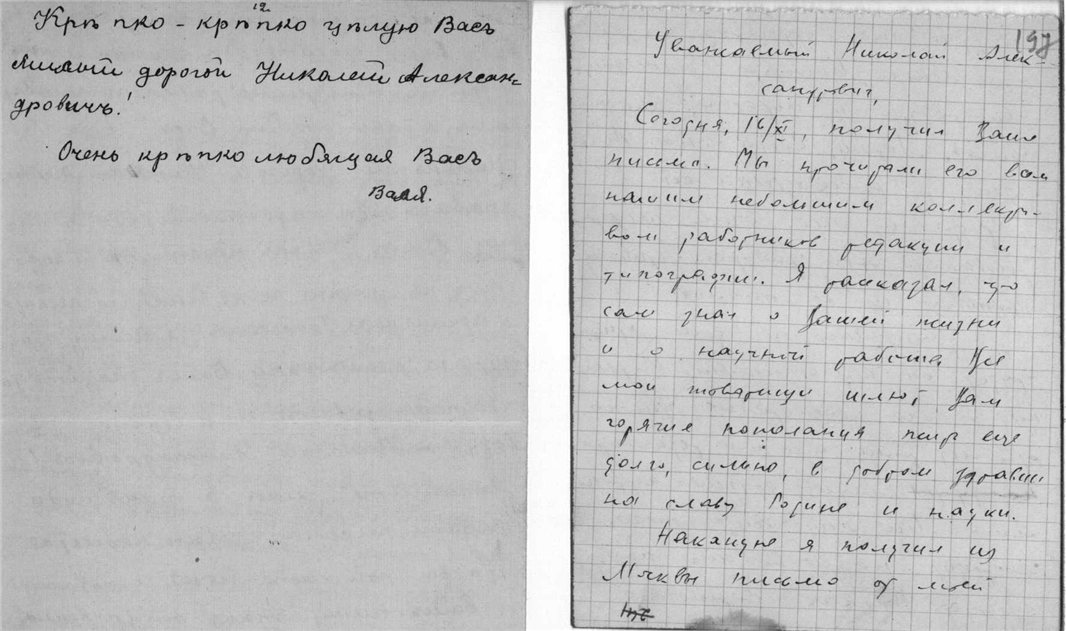 12
Крѣпко - крѣпко цѣлую Васъ
милый дорогой Николай Алексан-
дровичъ!
Очень крѣпко любящая Васъ
Валя.
197
Уважаемый Николай Алек-
сандрович,
Сегодня, 16/XI, получил Ваше
письмо. Мы прочитали его всем
нашим небольшим коллекти-
вом работников редакции и
типографии. Я рассказал, что
сам знал о Вашей жизни
и о научной работе. Все
мои товарищи шлют Вам
горячие пожелания жить еще
долго, сильно, в добром здравии
на славу Родине и науки.
Накануне я получил из
Москвы письмо от моей